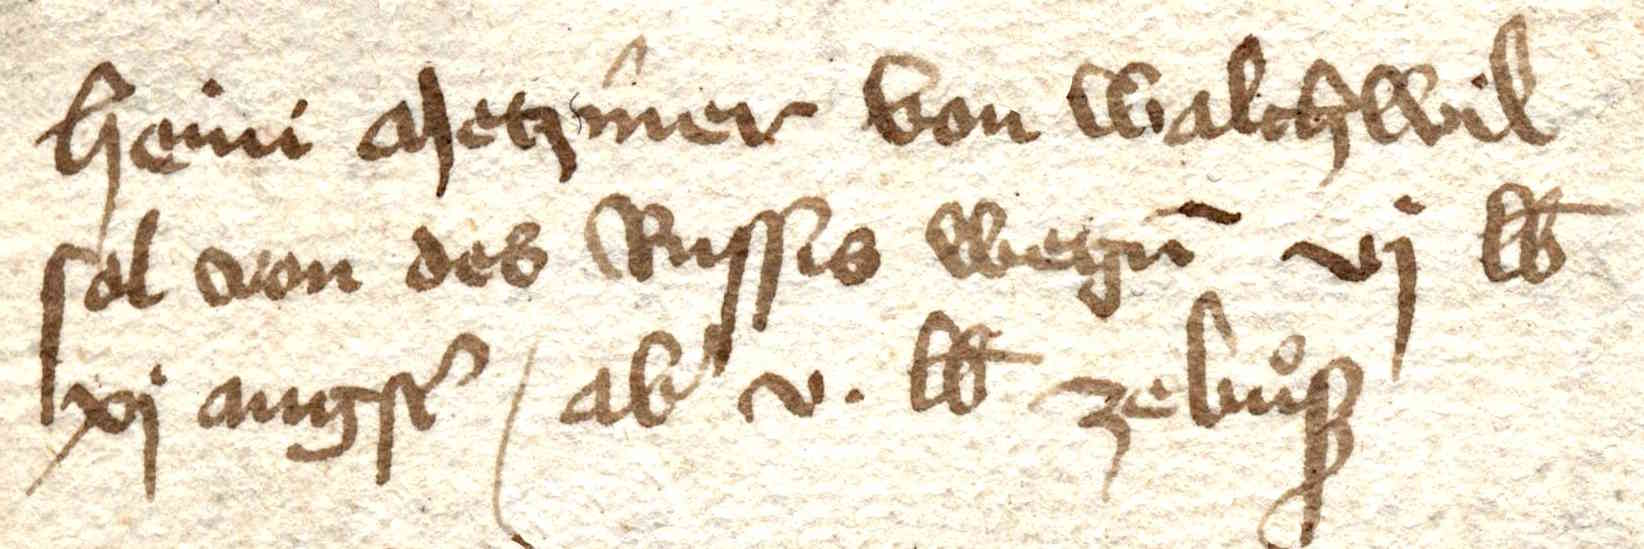 heini Metzmer von walchwil
sol von des Russis wegn̄ vj lb
xj angst̾ / ab v. lb zebůß